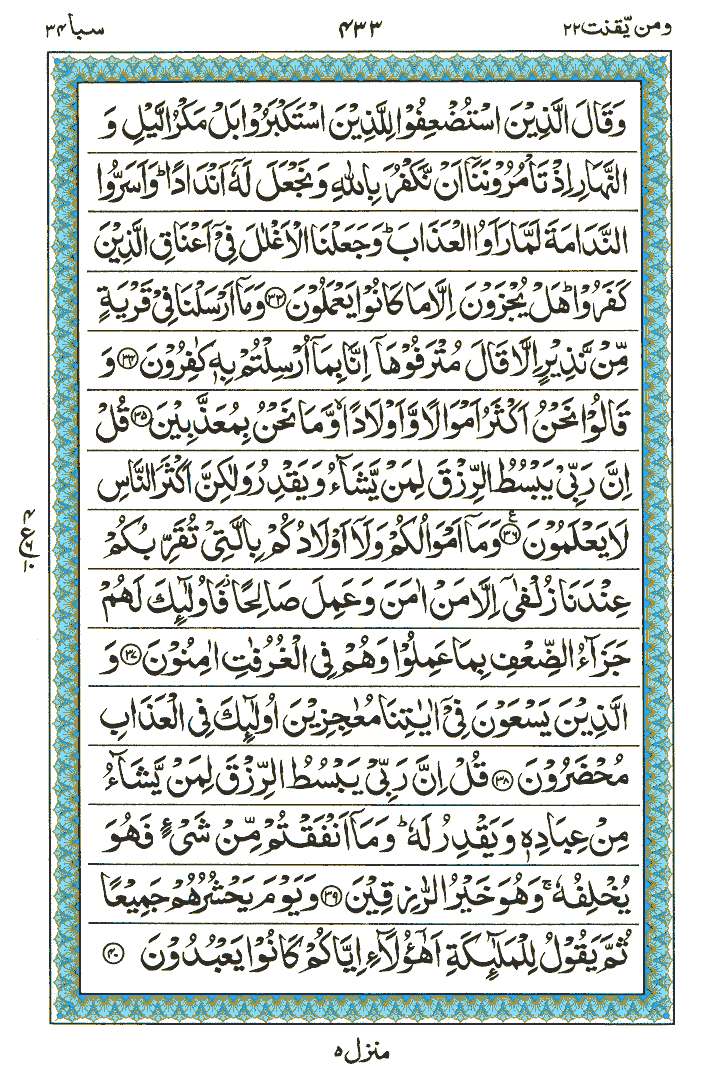 ومن يّقنت ٢٢ ٤٣٣ سبا ٣٤
وَقَالَ الَّذِيْنَ اسْتُضْعِفُوْا لِلَّذِيْنَ اسْتَكْبَرُوْا بَلْ مَكْرُ الَّيْلِ وَ
النَّهَارِ اِذْ تَاْمُرُوْنَنَآ اَنْ نَّكْفُرَ بِاللّٰهِ وَنَجْعَلَ لَهٗۤ اَنْدَادًا ؕ وَاَسَرُّوا
النَّدَامَةَ لَمَّا رَاَوُا الْعَذَابَ ؕ وَجَعَلْنَا الْاَغْلٰلَ فِيْۤ اَعْنَاقِ الَّذِيْنَ
كَفَرُوْا ؕ هَلْ يُجْزَوْنَ اِلَّا مَا كَانُوْا يَعْمَلُوْنَ ﴿٣٣﴾ وَمَآ اَرْسَلْنَا فِيْ قَرْيَةٍ
مِّنْ نَّذِيْرٍ اِلَّا قَالَ مُتْرَفُوْهَآ اِنَّا بِمَآ اُرْسِلْتُمْ بِهٖ كٰفِرُوْنَ ﴿٣٤﴾ وَ
قَالُوْا نَحْنُ اَكْثَرُ اَمْوَالًا وَّاَوْلَادًا ۙ وَّمَا نَحْنُ بِمُعَذَّبِيْنَ ﴿٣٥﴾ قُلْ
اِنَّ رَبِّيْ يَبْسُطُ الرِّزْقَ لِمَنْ يَّشَآءُ وَيَقْدِرُ وَلٰكِنَّ اَكْثَرَ النَّاسِ
لَا يَعْلَمُوْنَ ﴿٣٦﴾ ع وَمَآ اَمْوَالُكُمْ وَلَآ اَوْلَادُكُمْ بِالَّتِيْ تُقَرِّبُكُمْ
عِنْدَنَا زُلْفٰىٓ اِلَّا مَنْ اٰمَنَ وَعَمِلَ صَالِحًا ۫ فَاُولٰٓئِكَ لَهُمْ
جَزَآءُ الضِّعْفِ بِمَا عَمِلُوْا وَهُمْ فِي الْغُرُفٰتِ اٰمِنُوْنَ ﴿٣٧﴾ وَ
الَّذِيْنَ يَسْعَوْنَ فِيْۤ اٰيٰتِنَا مُعٰجِزِيْنَ اُولٰٓئِكَ فِي الْعَذَابِ
مُحْضَرُوْنَ ﴿٣٨﴾ قُلْ اِنَّ رَبِّيْ يَبْسُطُ الرِّزْقَ لِمَنْ يَّشَآءُ
مِنْ عِبَادِهٖ وَيَقْدِرُ لَهٗ ؕ وَمَآ اَنْفَقْتُمْ مِّنْ شَيْءٍ فَهُوَ
يُخْلِفُهٗ ۚ وَهُوَ خَيْرُ الرّٰزِقِيْنَ ﴿٣٩﴾ وَيَوْمَ يَحْشُرُهُمْ جَمِيْعًا
ثُمَّ يَقُوْلُ لِلْمَلٰٓئِكَةِ اَهٰٓؤُلَآءِ اِيَّاكُمْ كَانُوْا يَعْبُدُوْنَ ﴿٤٠﴾
ع
منزل ٥